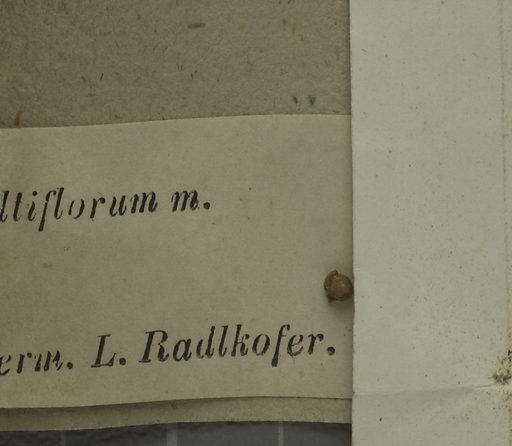 ltiflorum m.
erm. L. Radlkofer.